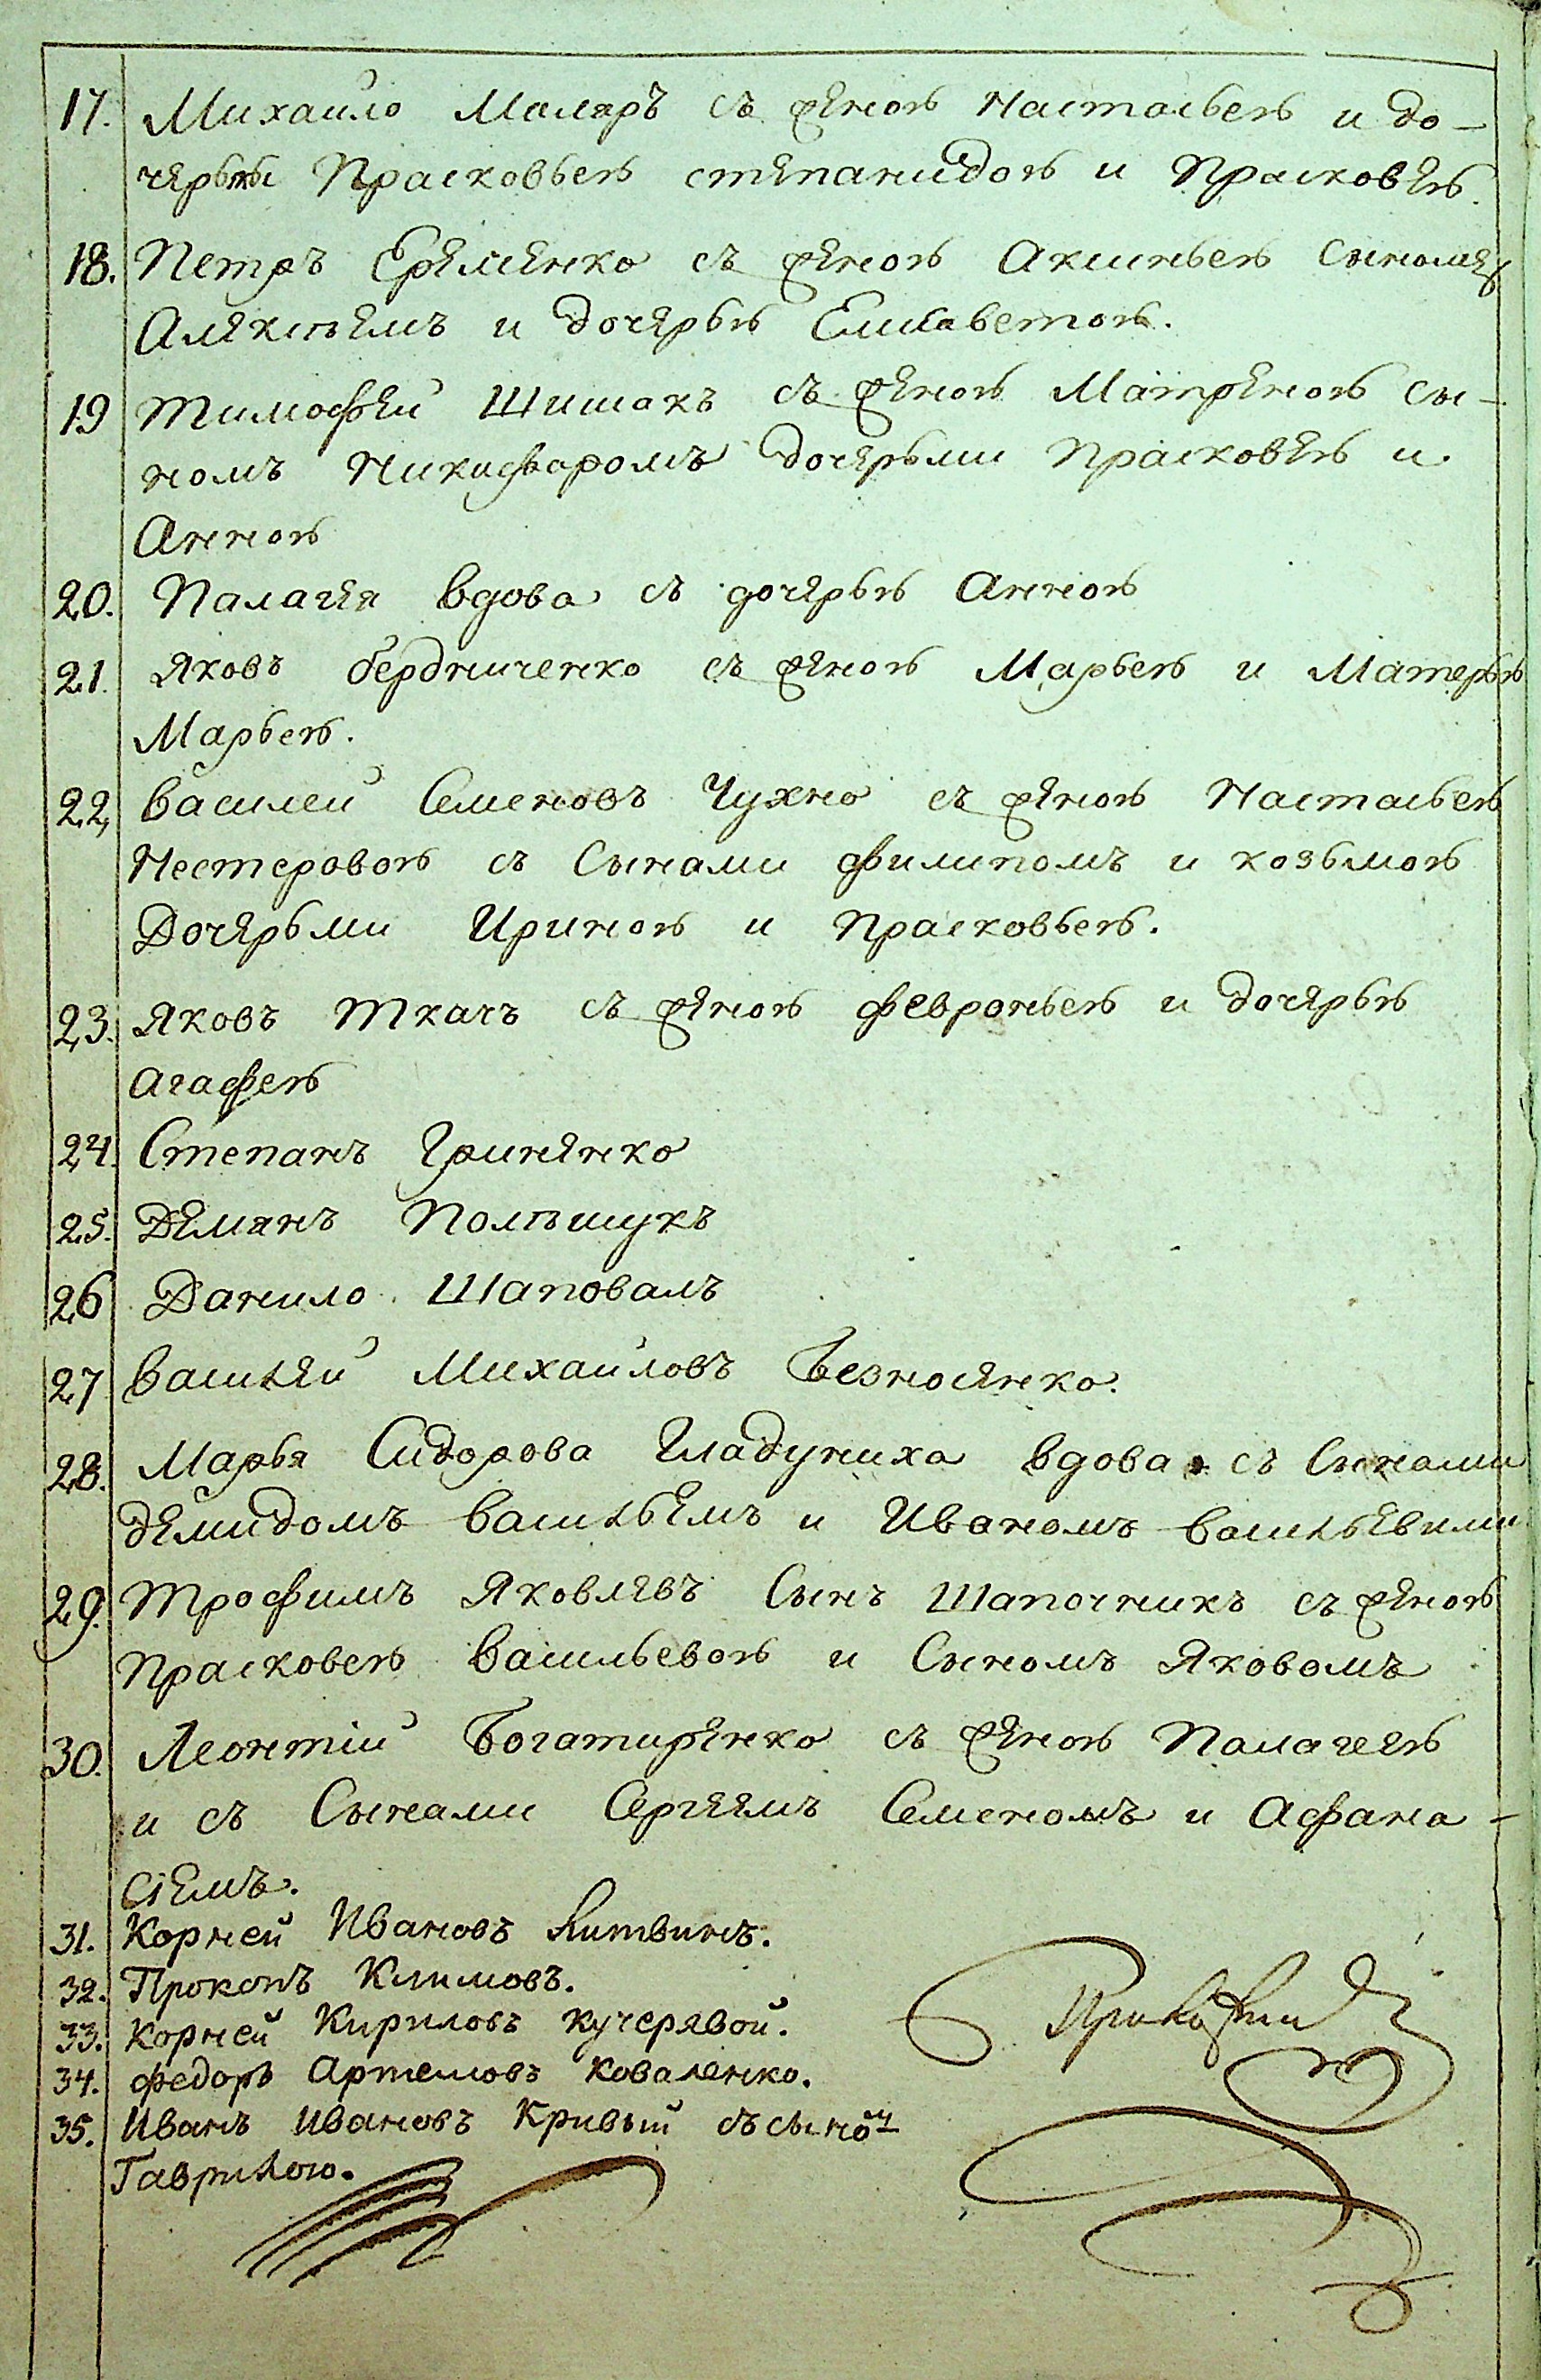 17. Михайло Маляръ съ женою Настасьею и до-
черьмы Прасковьею степанидою и Прасковею.
18. Петръ Еременко съ женою Аксиньею Сыномъ
Алексѣемъ и дочерью Елисаветою.
19 Тимофей Шишакъ съ женою Матреною сы-
номъ Никифаромъ дочерьми Прасковею и
Анною
20. Палагея вдова съ дочерью Анною
21. Яковъ бердниченко съ женою Марьею и Матерью
Марьею.
22, Василей Семеновъ Чухно съ женою Настасьею
Нестеровою съ Сынами Филипомъ и козьмою
Дочерьми Ириною и Прасковьею.
23. Яковъ Ткачъ съ женою февроньею и дочерью
агафею
24. Степанъ Гриненко
25. Демянъ Полѣшукъ
26 Данило Шаповалъ
27 Василей Михайловъ Безносенко.
28. Марья Сидорова Гладуниха вдова съ Сынами
демидомъ Васильемъ и Иваномъ Васильевыми
29. Трофимъ Яковлевъ Сынъ Шапочникъ съ женою
Прасковею Васильевою и Сыномъ Яковомъ
30. Леонтій Богатиренко съ женою Палагеею
и съ Сынами Сергеемъ Семеномъ и Афана-
сіемъ.
31. Корней Ивановъ Литвинъ.
32. Прокопъ Климовъ.
33. Корней Кириловъ кучерявой.
34. федоръ Артемовъ коваленко.
35. Иванъ Ивановъ Кривый съ сыном
Гаврилою.